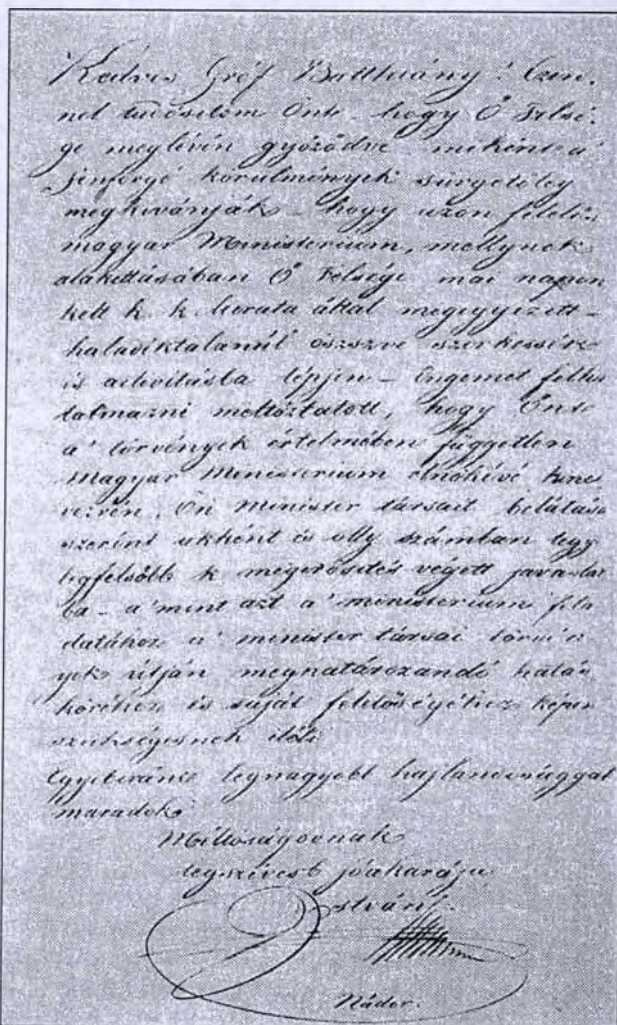 Kedves Gróf Batthyány! Ezen-
nel tudósitom Önt – hogy Ő Felsé-
ge meglévén győződve – miként a'
fenforgó körülmények sürgetőleg
megkivánják – hogy azon felelős
magyar Ministerium, mellynek
alakitásában Ő Felsége mai napon
kelt k. k. leirata által megegyezett –
haladéktalanúl öszszve szerkessék
is activitásba lépjen – Engemet felha
talmazni méltóztatott, hogy Önt
a' törvények értelmében független
Magyar Ministerium elnökévé kine
vezvén, Ön minister társait belátása
szerint akként és olly számban
legfelsőbb k. megerősités végett javasla
ba – a'mint azt a' ministerium fela
datához a' minister társai törvé
yek útján meghatározandó hatás
köréhez is saját felelőségéhez képest
szükségesnek itéli
Egyébiránt legnagyobb hajlandósággal
maradok
Méltóságodnak
legszívesb jóakarója
István
Nádor.